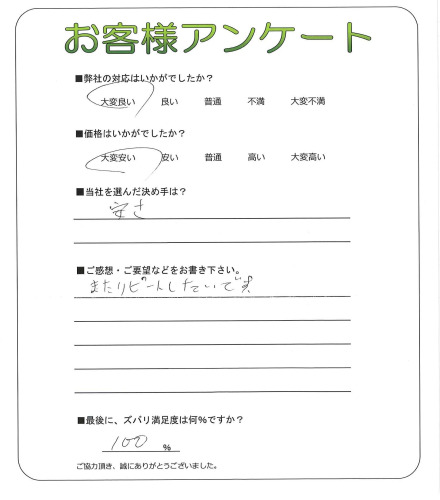 お客様アンケート
■弊社の対応はいかがでしたか？
大変良い 良い 普通 不満 大変不満
■価格はいかがでしたか？
大変安い 安い 普通 高い 大変高い
■当社を選んだ決め手は？
安さ
■ご感想・ご要望などをお書き下さい。
またリピートしたいです
■最後に、ズバリ満足度は何%ですか？
100 %
ご協力頂き、誠にありがとうございました。